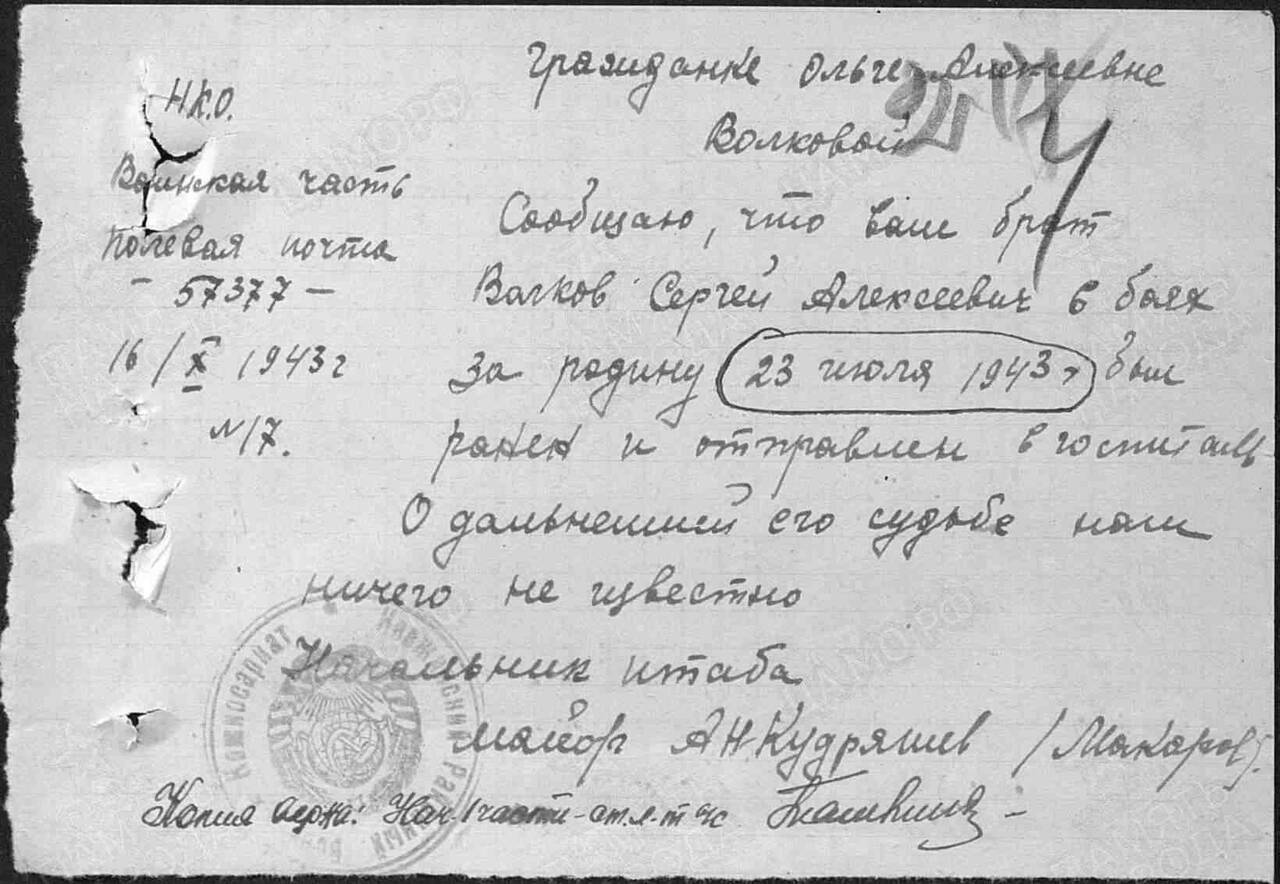 Гражданке Ольге Алексеевне
Волковой
Н.К.О.
Воинская часть
полевая почта
- 57377 -
16/X 1943 г
№17.
Сообщаю, что ваш брат
Волков Сергей Алексеевич в боях
за родину 23 июля 1943 г был
ранен и отправлен в госпиталь
О дальнейшей его судьбе нам
ничего не известно
Начальник штаба
майор А.Н.Кудряшев /Макаров/.
Копия верна: Нач. 1 части - ст. л-т